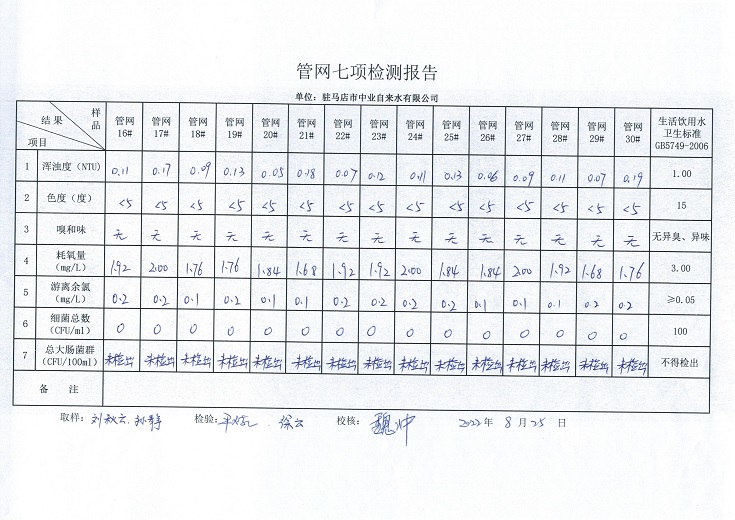 管网七项检测报告
单位：驻马店市中业自来水有限公司
结果 样品 项目 管网16# 管网17# 管网18# 管网19# 管网20# 管网21# 管网22# 管网23# 管网24# 管网25# 管网26# 管网27# 管网28# 管网29# 管网30# 生活饮用水卫生标准GB5749-2006
1 浑浊度（NTU） 0.11 0.17 0.09 0.13 0.05 0.18 0.07 0.12 0.11 0.13 0.06 0.09 0.11 0.07 0.19 1.00
2 色度（度） <5 <5 <5 <5 <5 <5 <5 <5 <5 <5 <5 <5 <5 <5 <5 15
3 嗅和味 无 无 无 无 无 无 无 无 无 无 无 无 无 无 无 无异臭、异味
4 耗氧量（mg/L） 1.92 2.00 1.76 1.76 1.84 1.68 1.92 1.92 2.00 1.84 1.84 2.00 1.92 1.68 1.76 3.00
5 游离余氯（mg/L） 0.2 0.2 0.1 0.2 0.1 0.1 0.2 0.2 0.2 0.2 0.1 0.1 0.1 0.2 0.2 ≥0.05
6 细菌总数（CFU/ml） 0 0 0 0 0 0 0 0 0 0 0 0 0 0 0 100
7 总大肠菌群（CFU/100ml） 未检出 未检出 未检出 未检出 未检出 未检出 未检出 未检出 未检出 未检出 未检出 未检出 未检出 未检出 未检出 不得检出
备 注
取样：刘秋云、孙静 检验： 徐云 校核：魏冲 2022年 8月25日